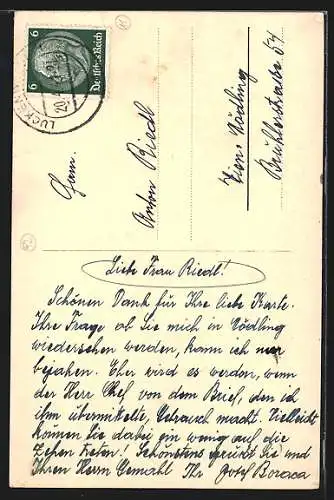 6 6
Deutsches Reich
LUCKEN
20.4
Fam.
Anton Riedl
Wien-Mödling
Brühlerstraße 54
Liebe Frau Riedl!
Schönen Dank für Ihre liebe Karte.
Ihre Frage ob Sie mich in Mödling
wiedersehen werden, kann ich nur
bejahen. Eher wird es werden, wenn
der Herr Chef von dem Brief, den ich
ihm übermittelte, Gebrauch macht. Vielleicht
können Sie dabei ein wenig auf die
Zehen treten! Schönstens grüsst Sie und
Ihren Herrn Gemahl Ihr Josef